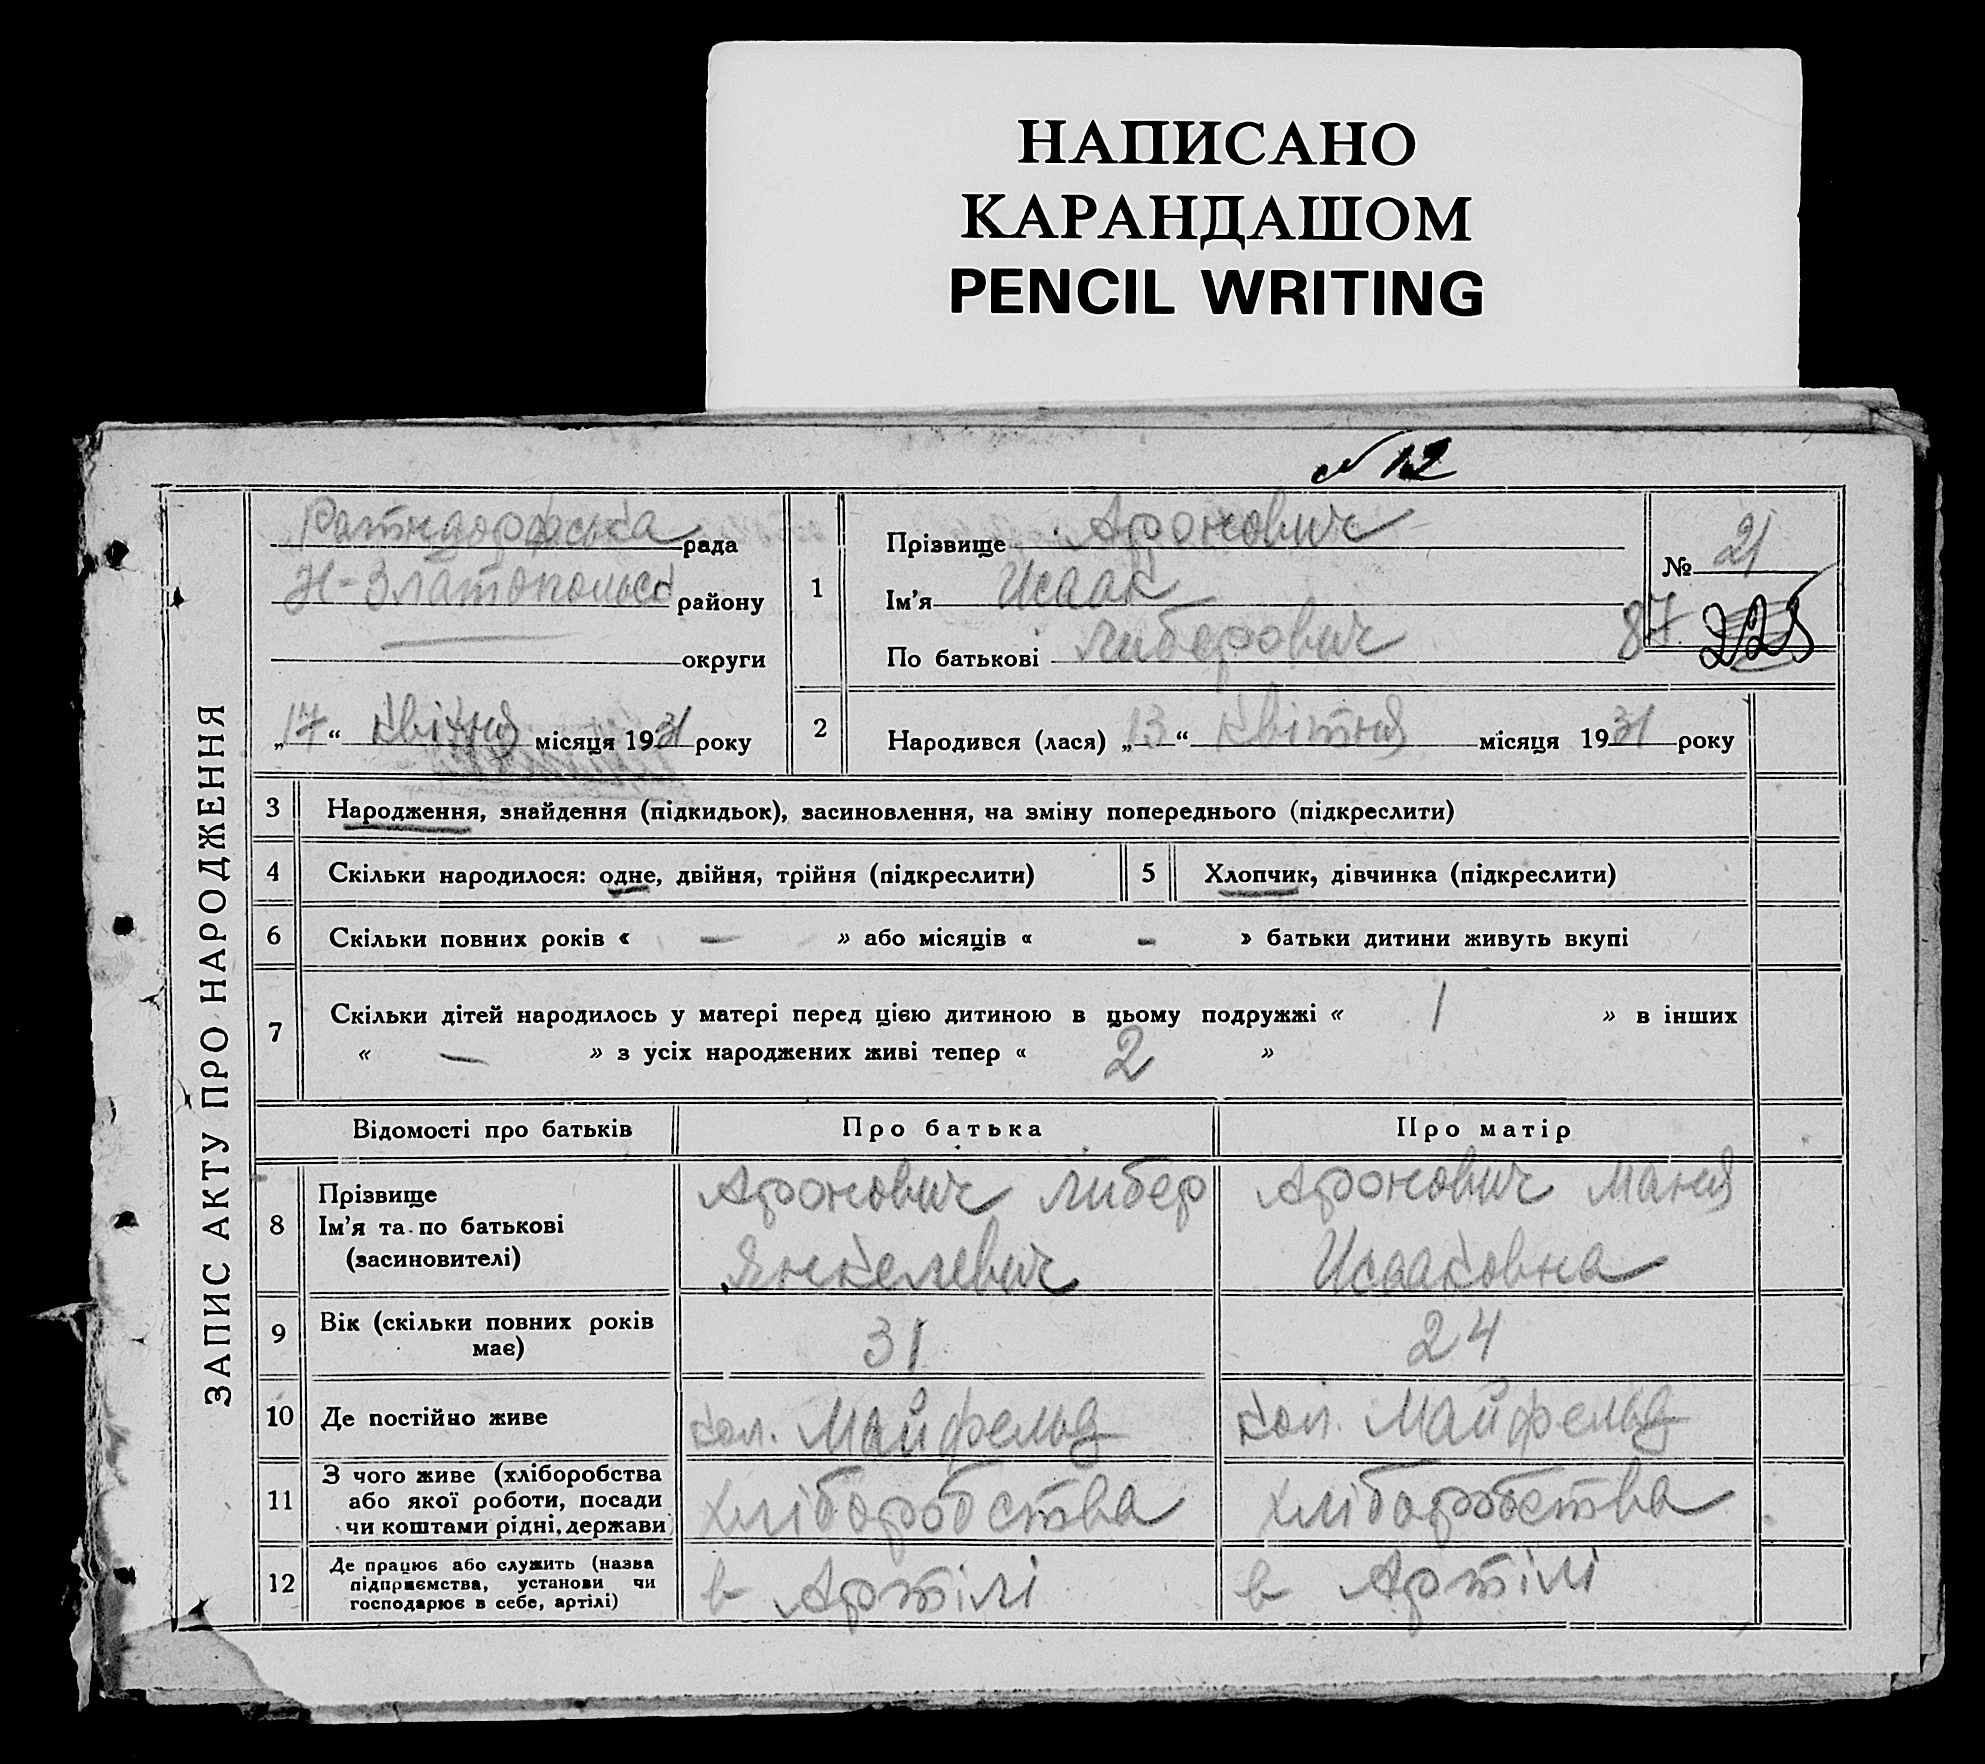 НАПИСАНО
КАРАНДАШОМ
PENCIL WRITING
№ 12
ЗАПИС АКТУ ПРО НАРОДЖЕННЯ
Ротндорфська рада
Н-Златопольск району
округи
„17“ Квітня місяця 1931 року
1
Прізвище Аронович
Ім'я Исаак
По батькові Либерович
№ 21
87 225
2
Народився (лася) „13“ Квітня місяця 1931 року
3 Народження, знайдення (підкидьок), засиновлення, на зміну попереднього (підкреслити)
4 Скільки народилося: одне, двійня, трійня (підкреслити) 5 Хлопчик, дівчинка (підкреслити)
6 Скільки повних років « — » або місяців « - » батьки дитини живуть вкупі
7 Скільки дітей народилось у матері перед цією дитиною в цьому подружжі « 1 » в інших
« — » з усіх народжених живі тепер « 2 »
Відомості про батьків Про батька Про матір
8 Прізвище
Ім'я та по батькові
(засиновителі)
Аронович Либер
Янкелевич
Аронович Маня
Исааковна
9 Вік (скільки повних років
має)
31 24
10 Де постійно живе кол. Майфельд кол. Майфельд
11 З чого живе (хліборобства
або якої роботи, посади
чи коштами рідні, держави
хліборобства хліборобства
12 Де працює або служить (назва
підприємства, установи чи
господарює в себе, артілі)
в Артілі в Артілі